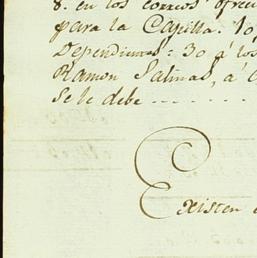 8. en los correos ofrec
para la Capilla. 10
Dependientes: 30 á los
Ramon Salinas, á
se le debe . . . . . . .
Existen